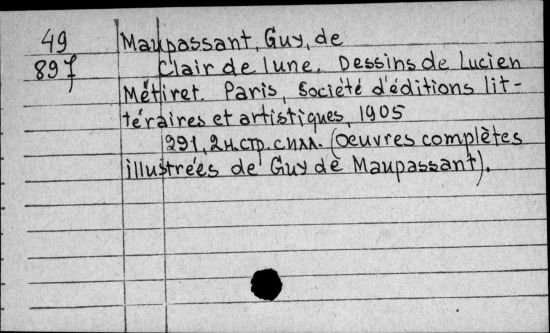 49 Maupassant, Guy, de
897 Clair de lune. Dessins de Lucien
Métiret. Paris, Société d'éditions lit-
téraires et artistiques, 1905
291, 2н.стр. с илл. (oeuvres complètes
illustrées de Guy de Maupassant).